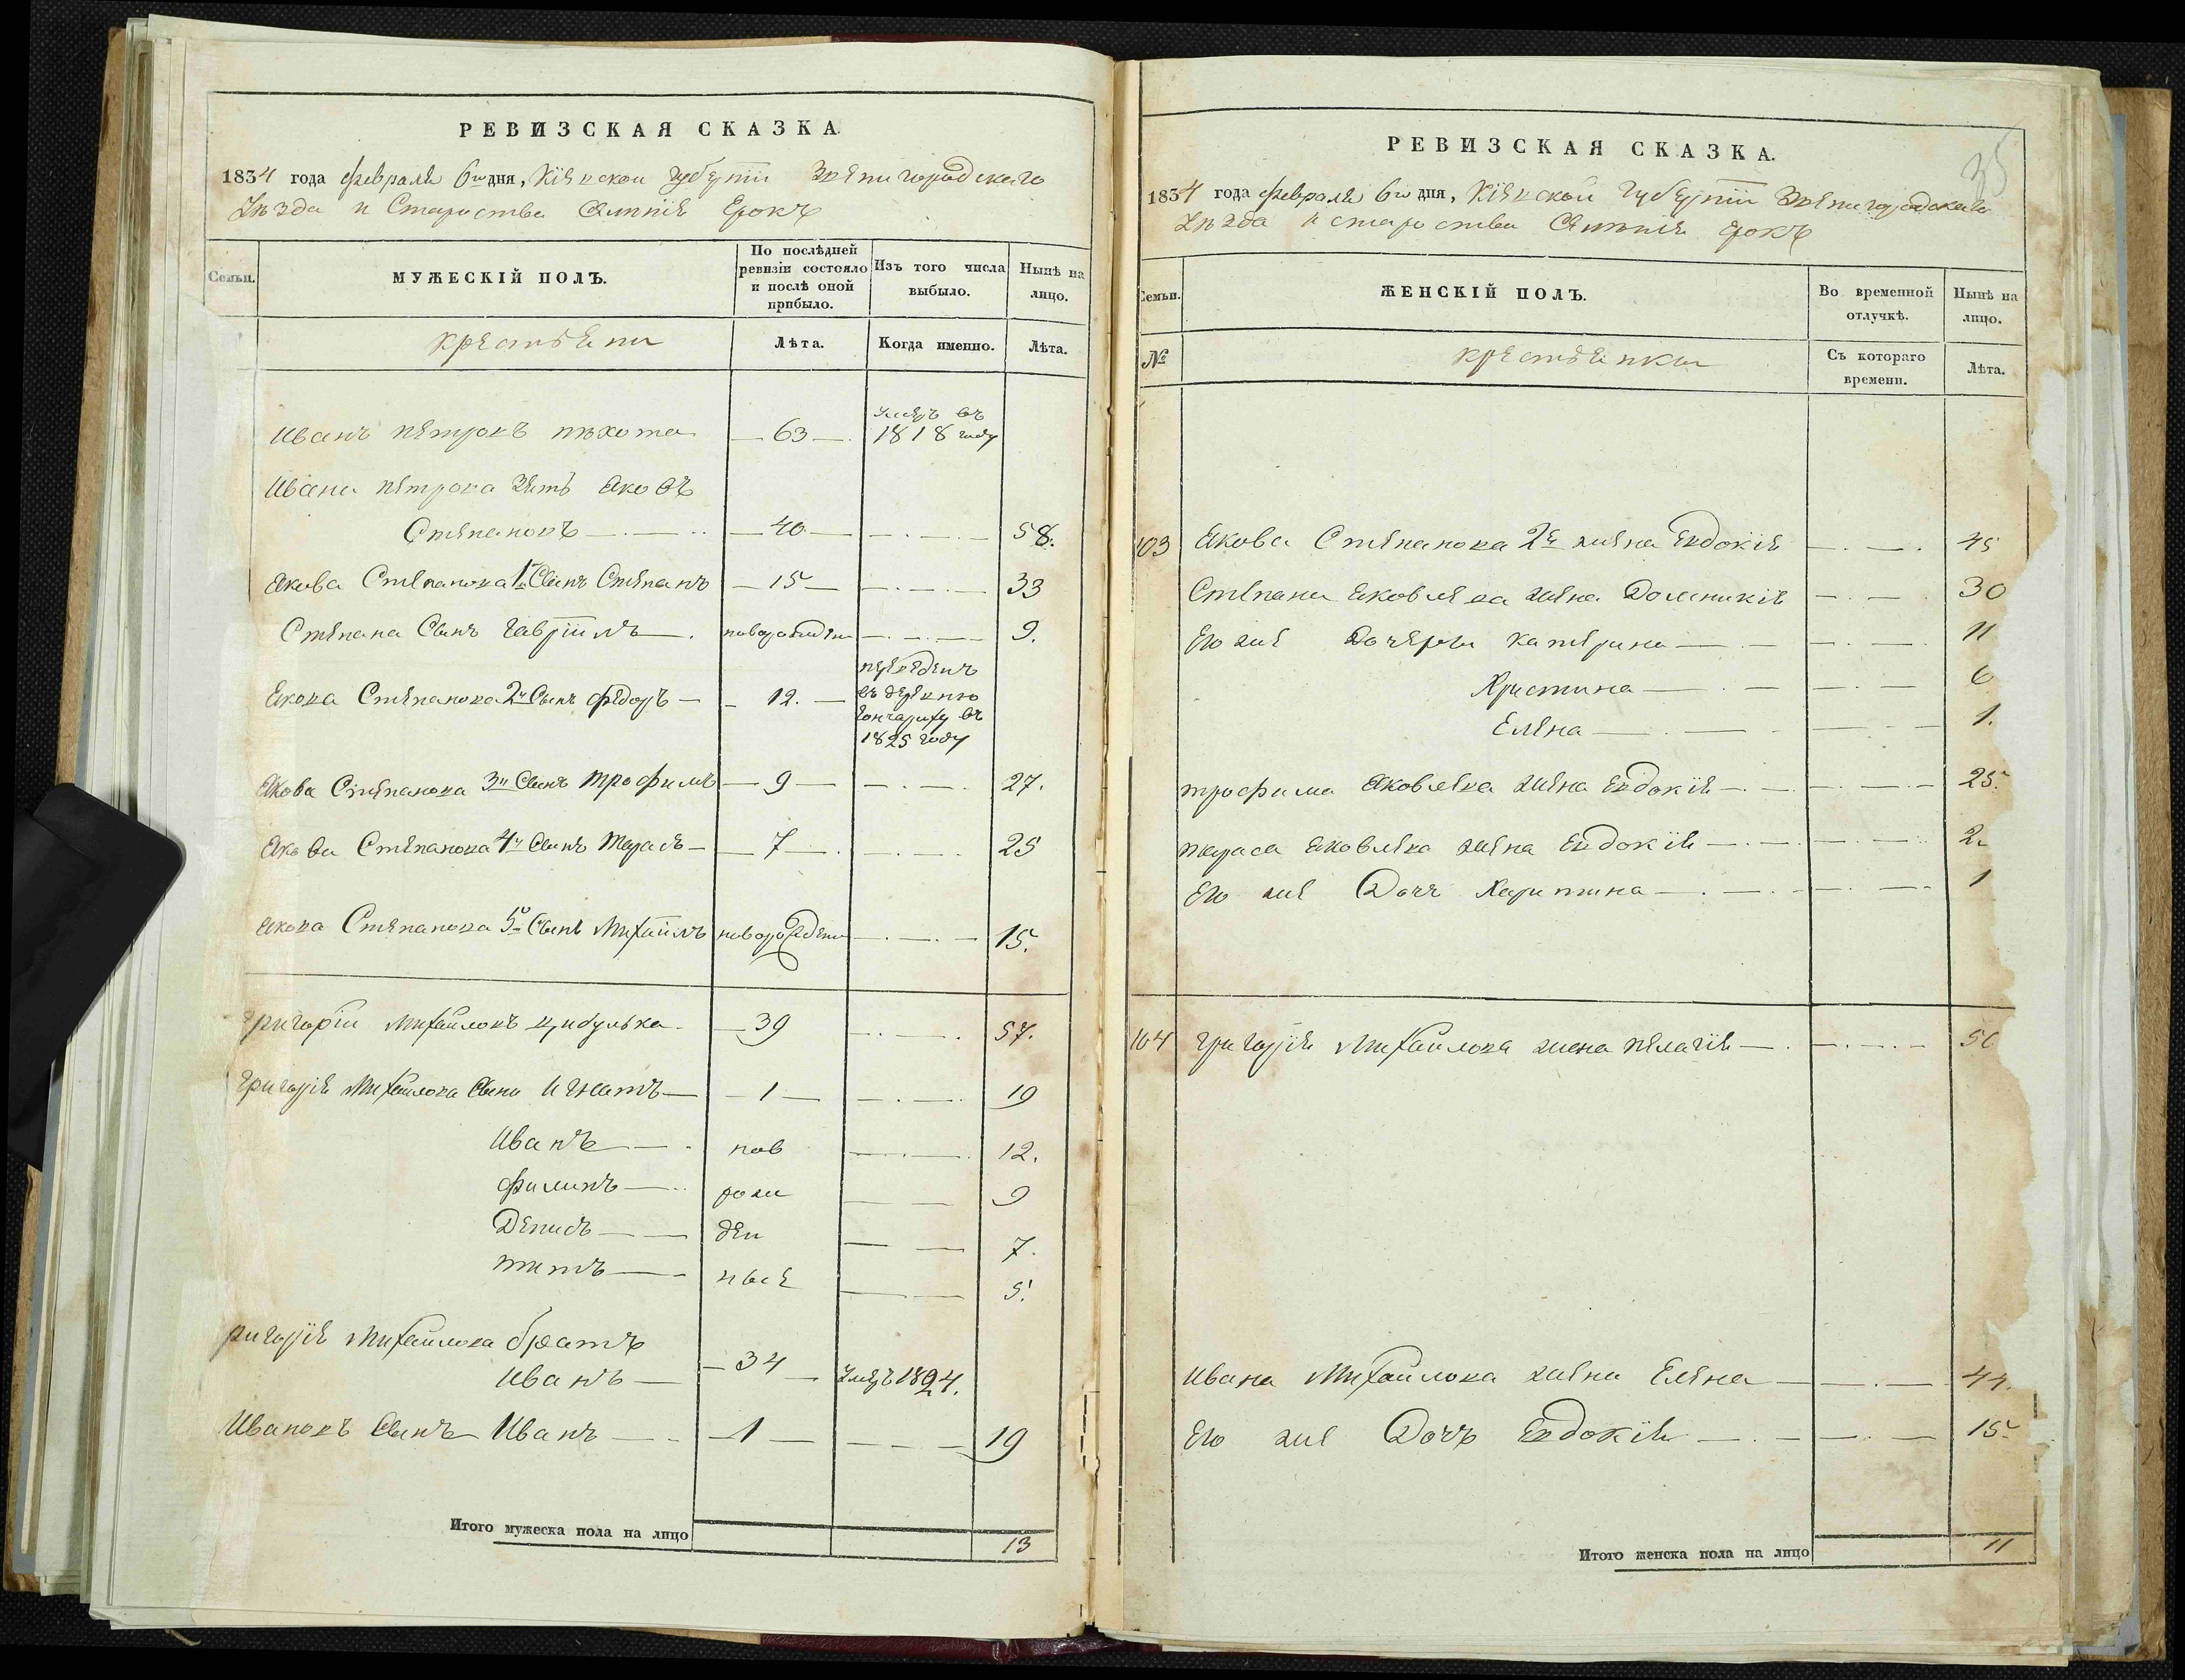 РЕВИЗСКАЯ СКАЗКА.
1834 года февраля 6го дня, Кіевской губерніи Звенигородскаго
уѣзда и староства
Семьи.
МУЖЕСКІЙ ПОЛЪ.
По послѣдней ревизіи состояло и послѣ оной прибыло.
Изъ того числа выбыло.
Нынѣ на лицо.
крестьяни
Лѣта.
Когда именно.
Лѣта.
Иванъ петровъ пѣхота 63 умеръ въ 1818 году
Ивана петрова зять Яковъ
Степановъ 40 58.
Якова Степанова 1й Сынъ Степанъ 15 33
Степана Сынъ Гавріилъ новорожден 9.
Якова Степанова 2й Сынъ федоръ 12. переведенъ въ деревню Гончариху въ 1825 году
Якова Степанова 3й Сынъ трофимъ 9 27.
Якова Степанова 4й Сынъ тарасъ 7 25
Якова Степанова 5й Сынъ Михаилъ новорожден 15.
григорій Михайловъ цибулька 39 57.
григорія Михайлова Сыни Игнатъ 1 19
Иванъ нов 12.
филипъ рож 9
Денисъ ден 7.
титъ ные 5.
ригорія Михайлова братъ
Иванъ 34 умеръ 1824.
Ивановъ Сынъ Иванъ 1 19
Итого мужеска пола на лицо 13
35
РЕВИЗСКАЯ СКАЗКА.
1834 года февраля 6го дня, Кіевской губерніи Звенигородскаго
уѣзда и староства
Семьи.
ЖЕНСКІЙ ПОЛЪ.
Во временной отлучкѣ.
Нынѣ на лицо.
№
крестьянки
Съ котораго времени.
Лѣта.
103 Якова Степанова 2я жена Евдокія 45
Степана Яковлева жена Доминикія 30
Его же Дочери катерина 11
Христина 6
Елена 1.
трофима Яковлева жена Евдокія 25.
тараса Яковлева жена Евдокія
Его же Дочъ Харитина 1
104 григорія Михайлова жена пелагія
Ивана Михайлова жена Елена 44.
Его же Дочъ Евдокія 15
Итого женска пола на лицо 11